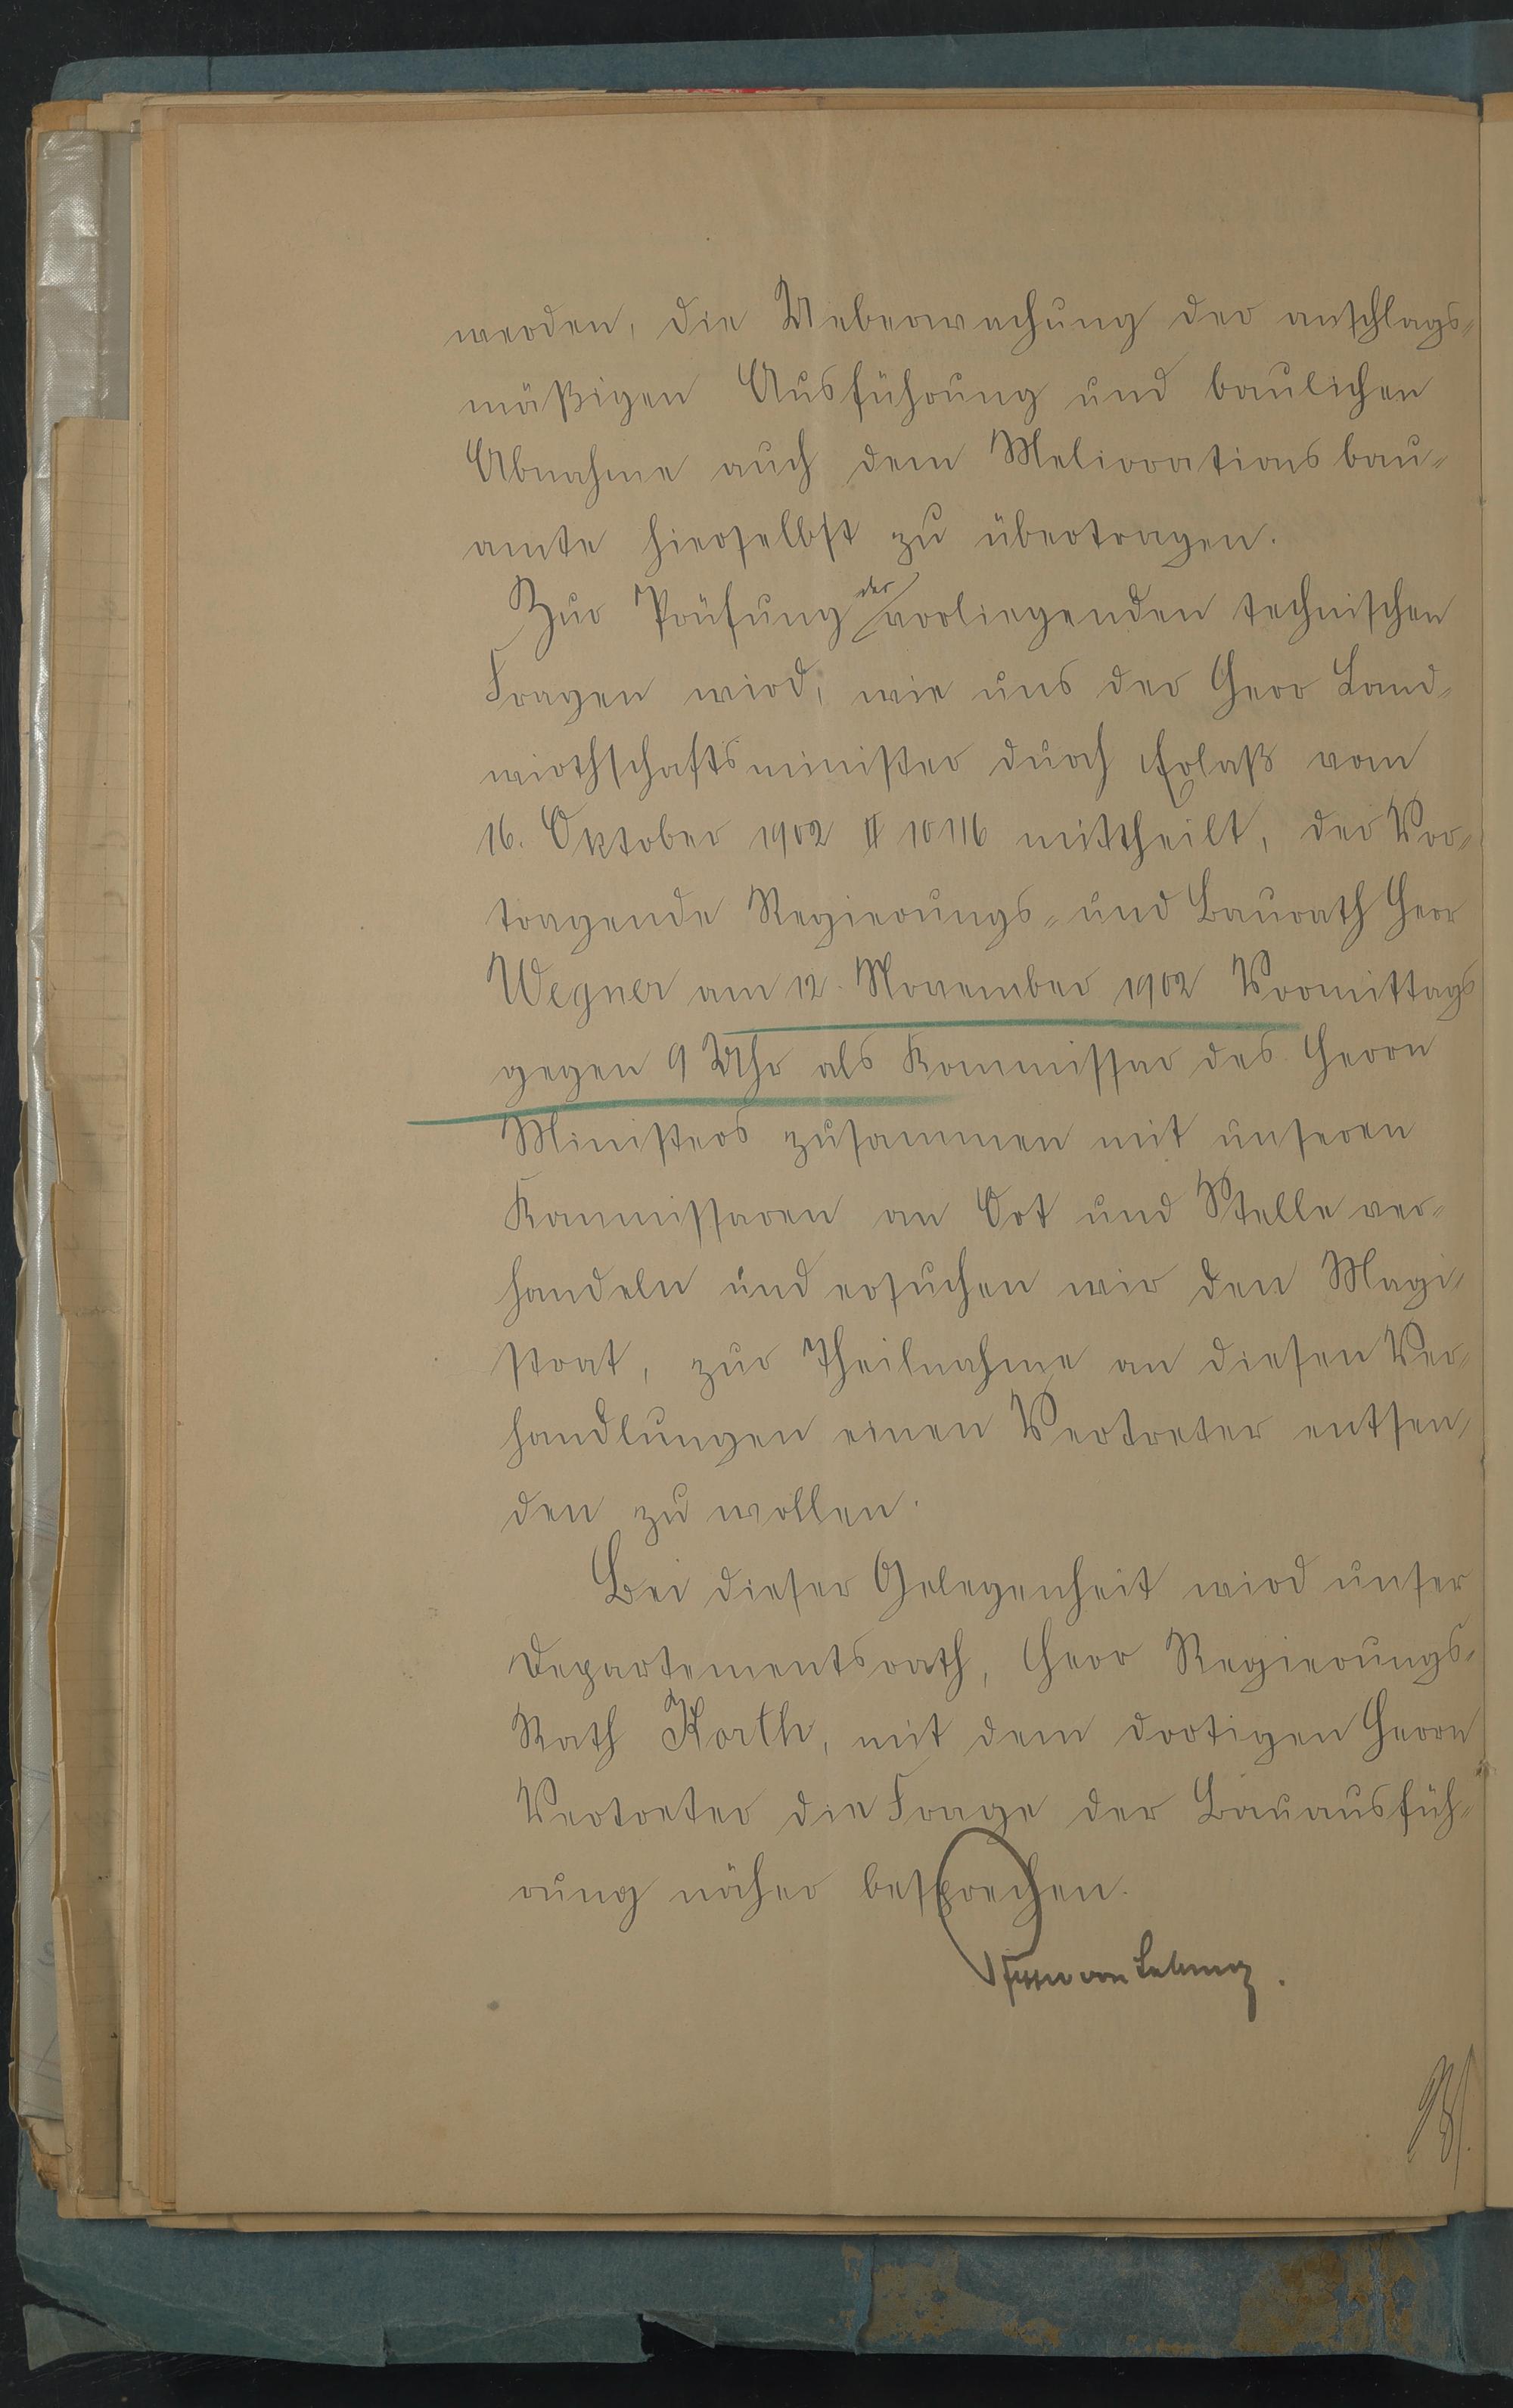 werden, die Ueberwachung der anschlags-
mäßigen Ausführung und baulichen
Abnahme auch dem Meliorationsbau-
amte hierselbst zu übertragen.
Zur Prüfung der vorliegenden technischen
Fragen wird, wie uns der Herr Land-
wirthschaftsminister durch Erlaß vom
16. Oktober 1902 II 10116 mittheilt, der Vor-
tragende Regierungs- und Baurath Herr
Wegner am 12. November 1902 Vormittags
gegen 9 Uhr als Kommissar des Herrn
Ministers zusammen mit unseren
Kommissaren an Ort und Stelle ver-
handeln und ersuchen wir den Magi-
strat, zur Theilnahme an diesen Ver-
handlungen einen Vertreter entsen-
den zu wollen.
Bei dieser Gelegenheit wird unser
Departementsrath, Herr Regierungs-
Rath Korth, mit dem dortigen Herrn
Vertreter die Frage der Bauausfüh-
rung näher besprechen.
von